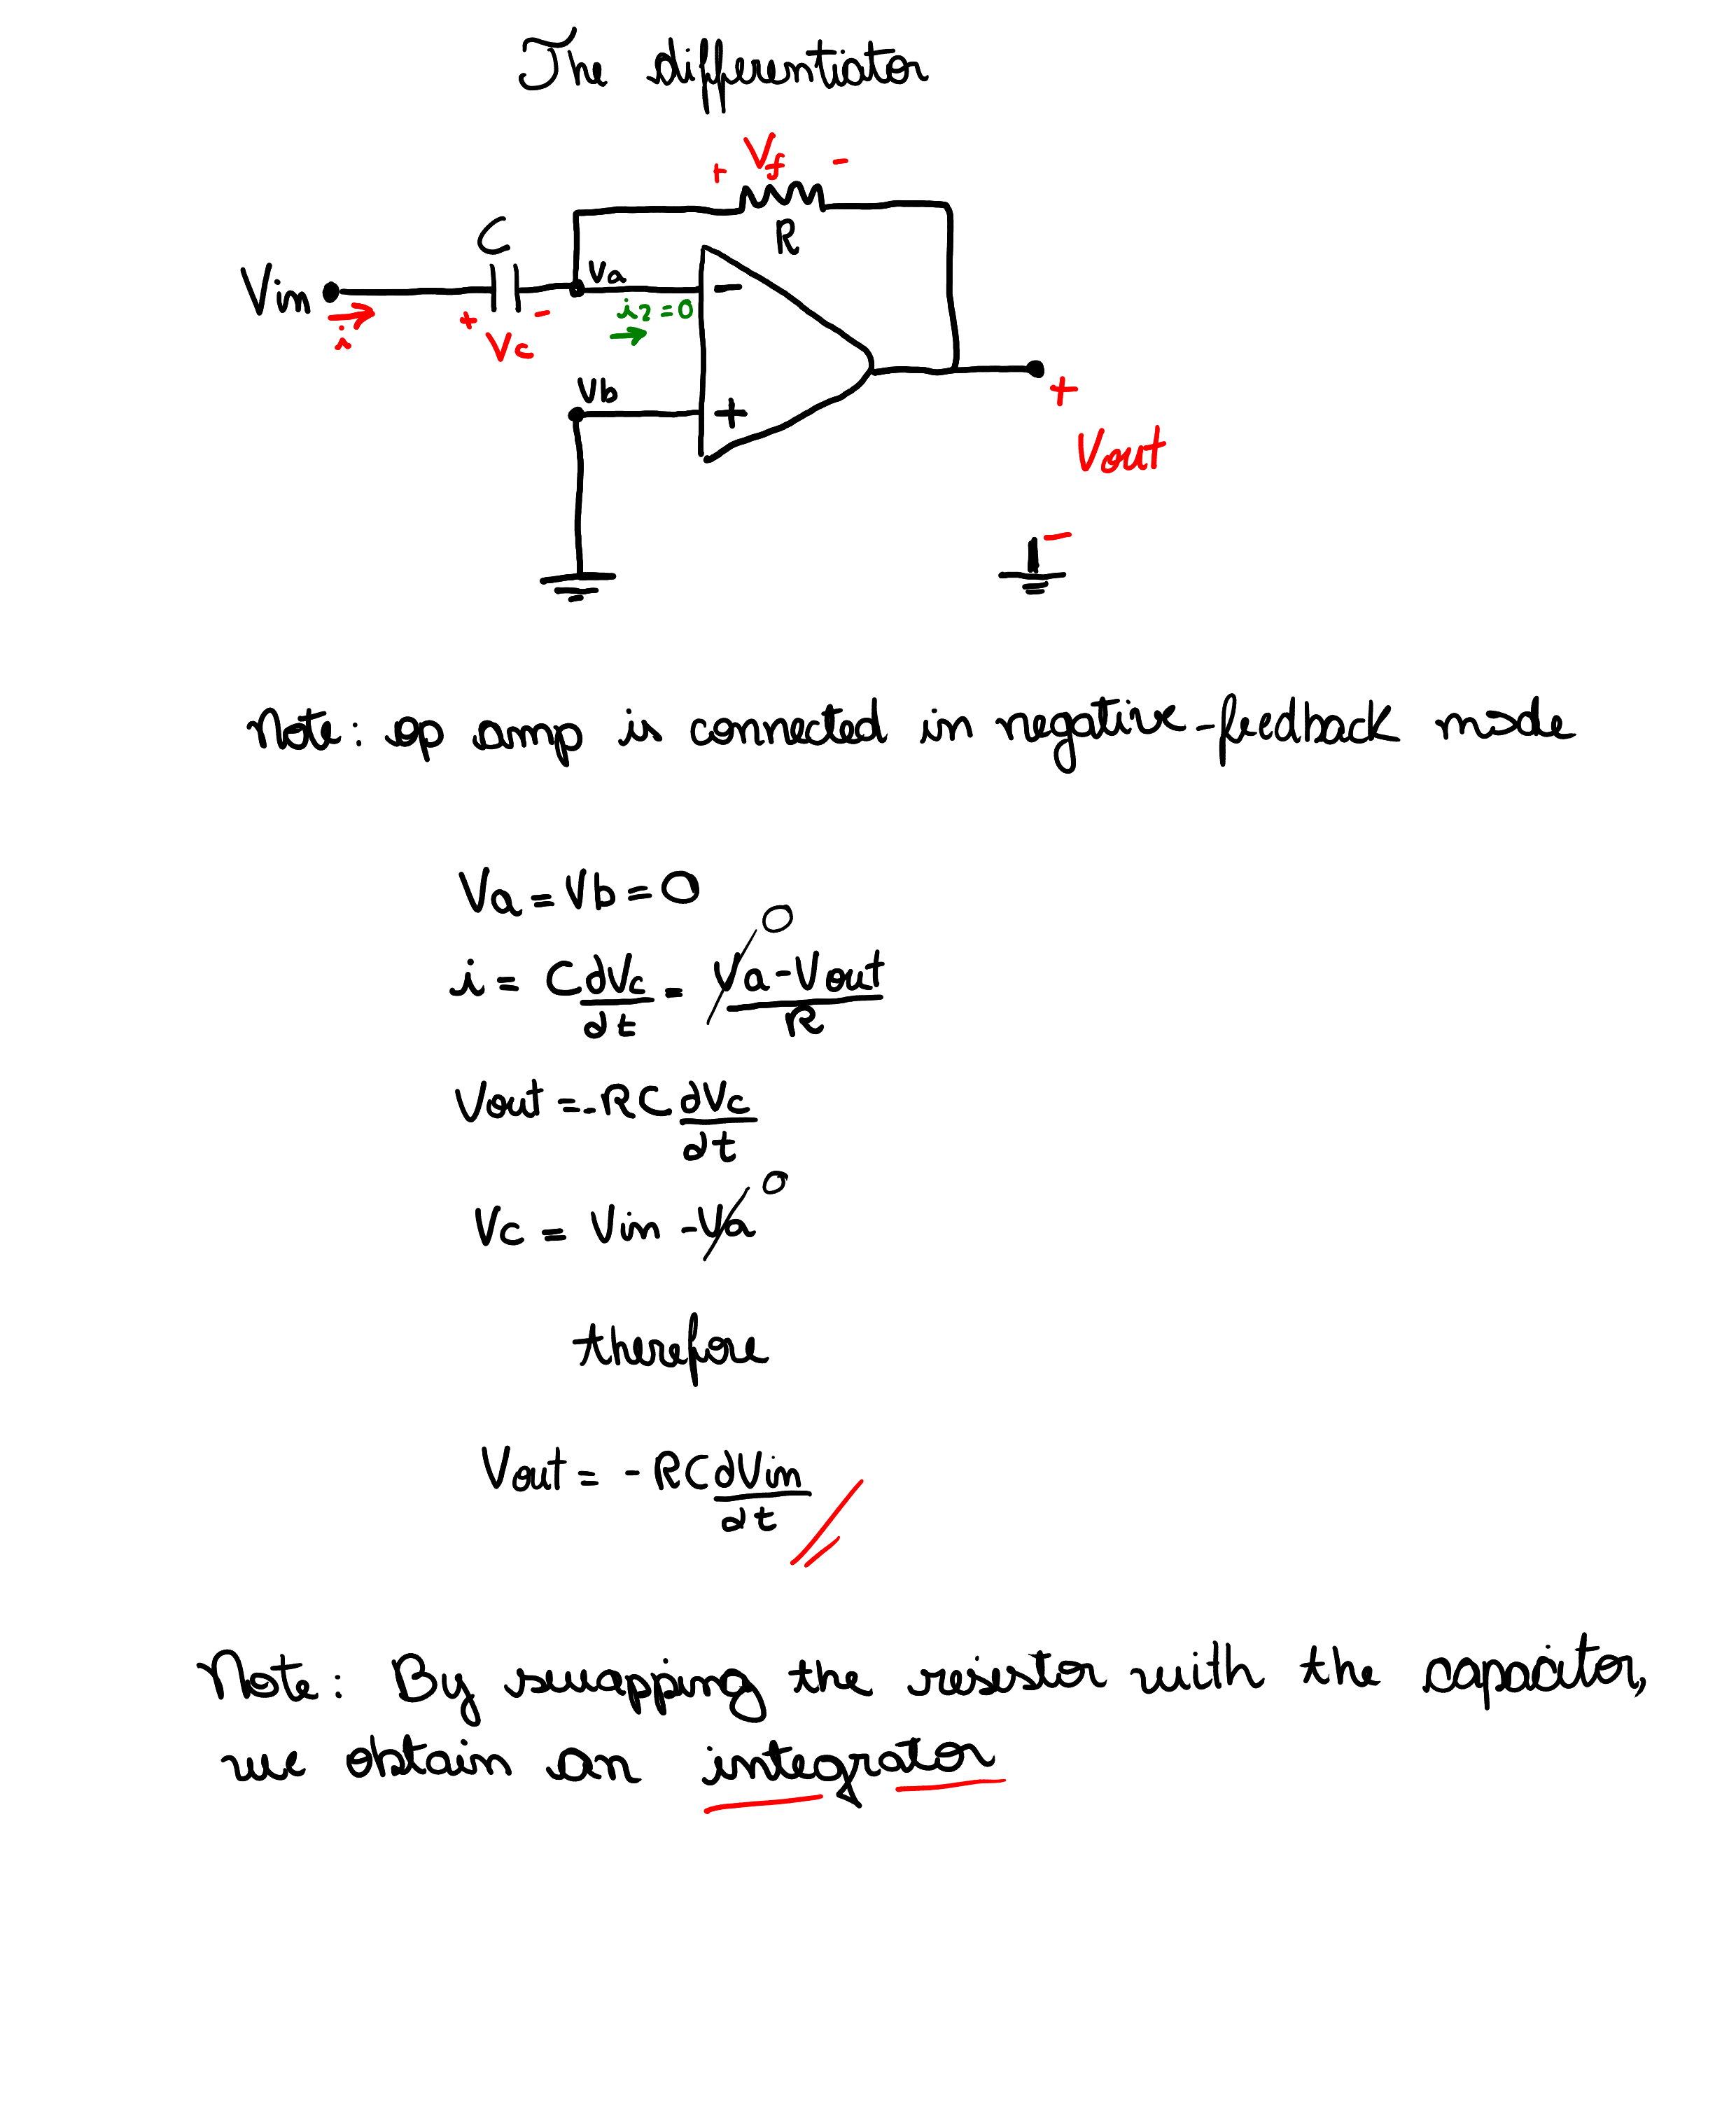 The differentiator
+ Vf -
R
C
Vin
Va
-
i2=0
i
+ Vc -
Vb
+
+
Vout
-
Note: op amp is connected in negative-feedback mode
Va = Vb = 0
i = C dVc/dt = Va - Vout/R
0
Vout = - RC dVc/dt
Vc = Vin - Va
0
therefore
Vout = - RC dVin/dt
Note: By swapping the resistor with the capacitor,
we obtain an integrator